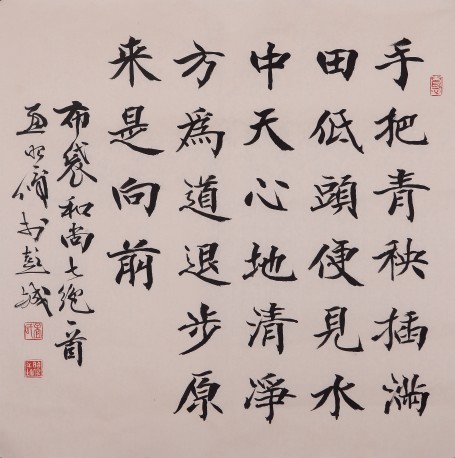 手把青秧插滿
田低頭便見水
中天心地清淨
方為道退步原
来是向前
布袋和尚七絕一首